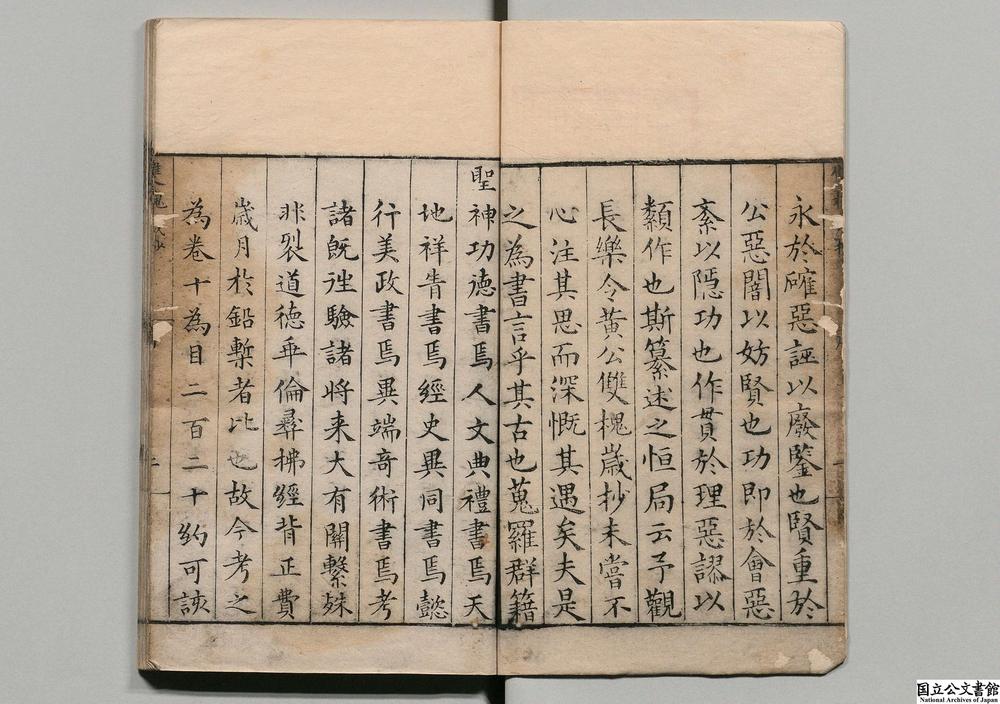 永於確惡誣以廢鑒也賢重於
公惡闇以妨賢也功即於會惡
紊以隠功也作貫於理惡謬以
纇作也斯纂述之恒局云予觀
長樂令黃公雙槐歲抄未嘗不
心注其思而深慨其遇矣夫是
之為書言乎其古也蒐羅群籍
聖神功徳書焉人文典禮書焉天
地祥眚書焉經史異同書焉懿
行美政書焉異端奇術書焉考
諸旣徃驗諸将来大有關繫殊
非裂道徳乖倫彞拂經背正費
歲月扵鉛槧者比也故今考之
為卷十為目二百二十約可該
国立公文書館
National Archives of Japan